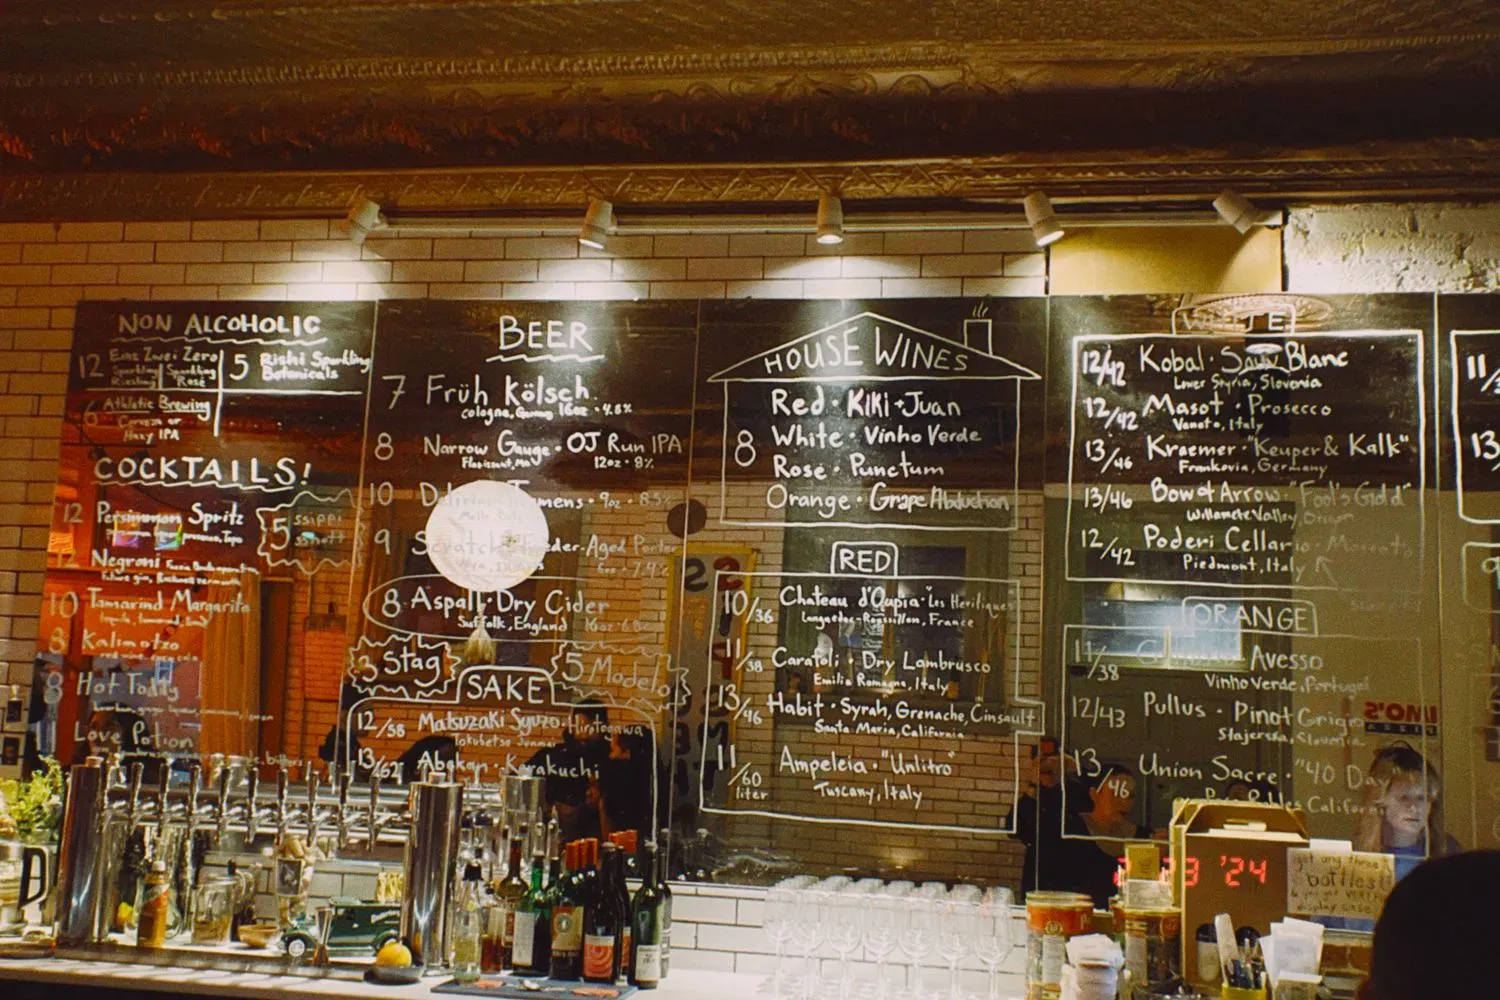 NON ALCOHOLIC
12 Einz Zwei Zero
Sparkling Riesling
Sparkling Rosé
5 Rishi Sparkling
Botanicals
6 Athletic Brewing
Cerveza or
Hazy IPA
COCKTAILS!
12 Persimmon Spritz
12 Negroni
10 Tamarind Margarita
8 Kalimotxo
8 Hot Toddy
Love Potion
BEER
7 Früh Kölsch
16oz · 4.8%
8 Narrow Gauge · OJ Run IPA
12oz · 8%
10
9
8 Aspall · Dry Cider
Suffolk, England 16oz
3 Stag
5 Modelo
SAKE
12/58 Matsuzaki Syuzo · Hirotogawa
13/62 Abekan · Karakuchi
HOUSE WINES
8
Red · Kiki + Juan
White · Vinho Verde
Rose · Punctum
Orange · Grape Abduction
RED
10/36 Chateau d'Oupia · "Les Heritiques
Languedoc-Roussillon, France
11/38 Caratoli · Dry Lambrusco
Emilia Romagna, Italy
13/46 Habit · Syrah, Grenache, Cinsault
Santa Maria, California
11/60 liter Ampeleia · "Unlitro"
Tuscany, Italy
WHITE
12/42 Kobal · Sauv Blanc
Lower Styria, Slovenia
12/42 Masot · Prosecco
Veneto, Italy
13/46 Kraemer · "Keuper & Kalk"
Frankovia, Germany
13/46 Bow & Arrow · "Fool's Gold"
Willamette Valley, Oregon
12/42 Poderi Cellario · Moscato
Piedmont, Italy
ORANGE
11/38 Avesso
Vinho Verde, Portugal
12/43 Pullus · Pinot Grigio
Stajerska, Slovenia
13/46 Union Sacre · "40 Day"
11/
13
get any three
bottles!
'24